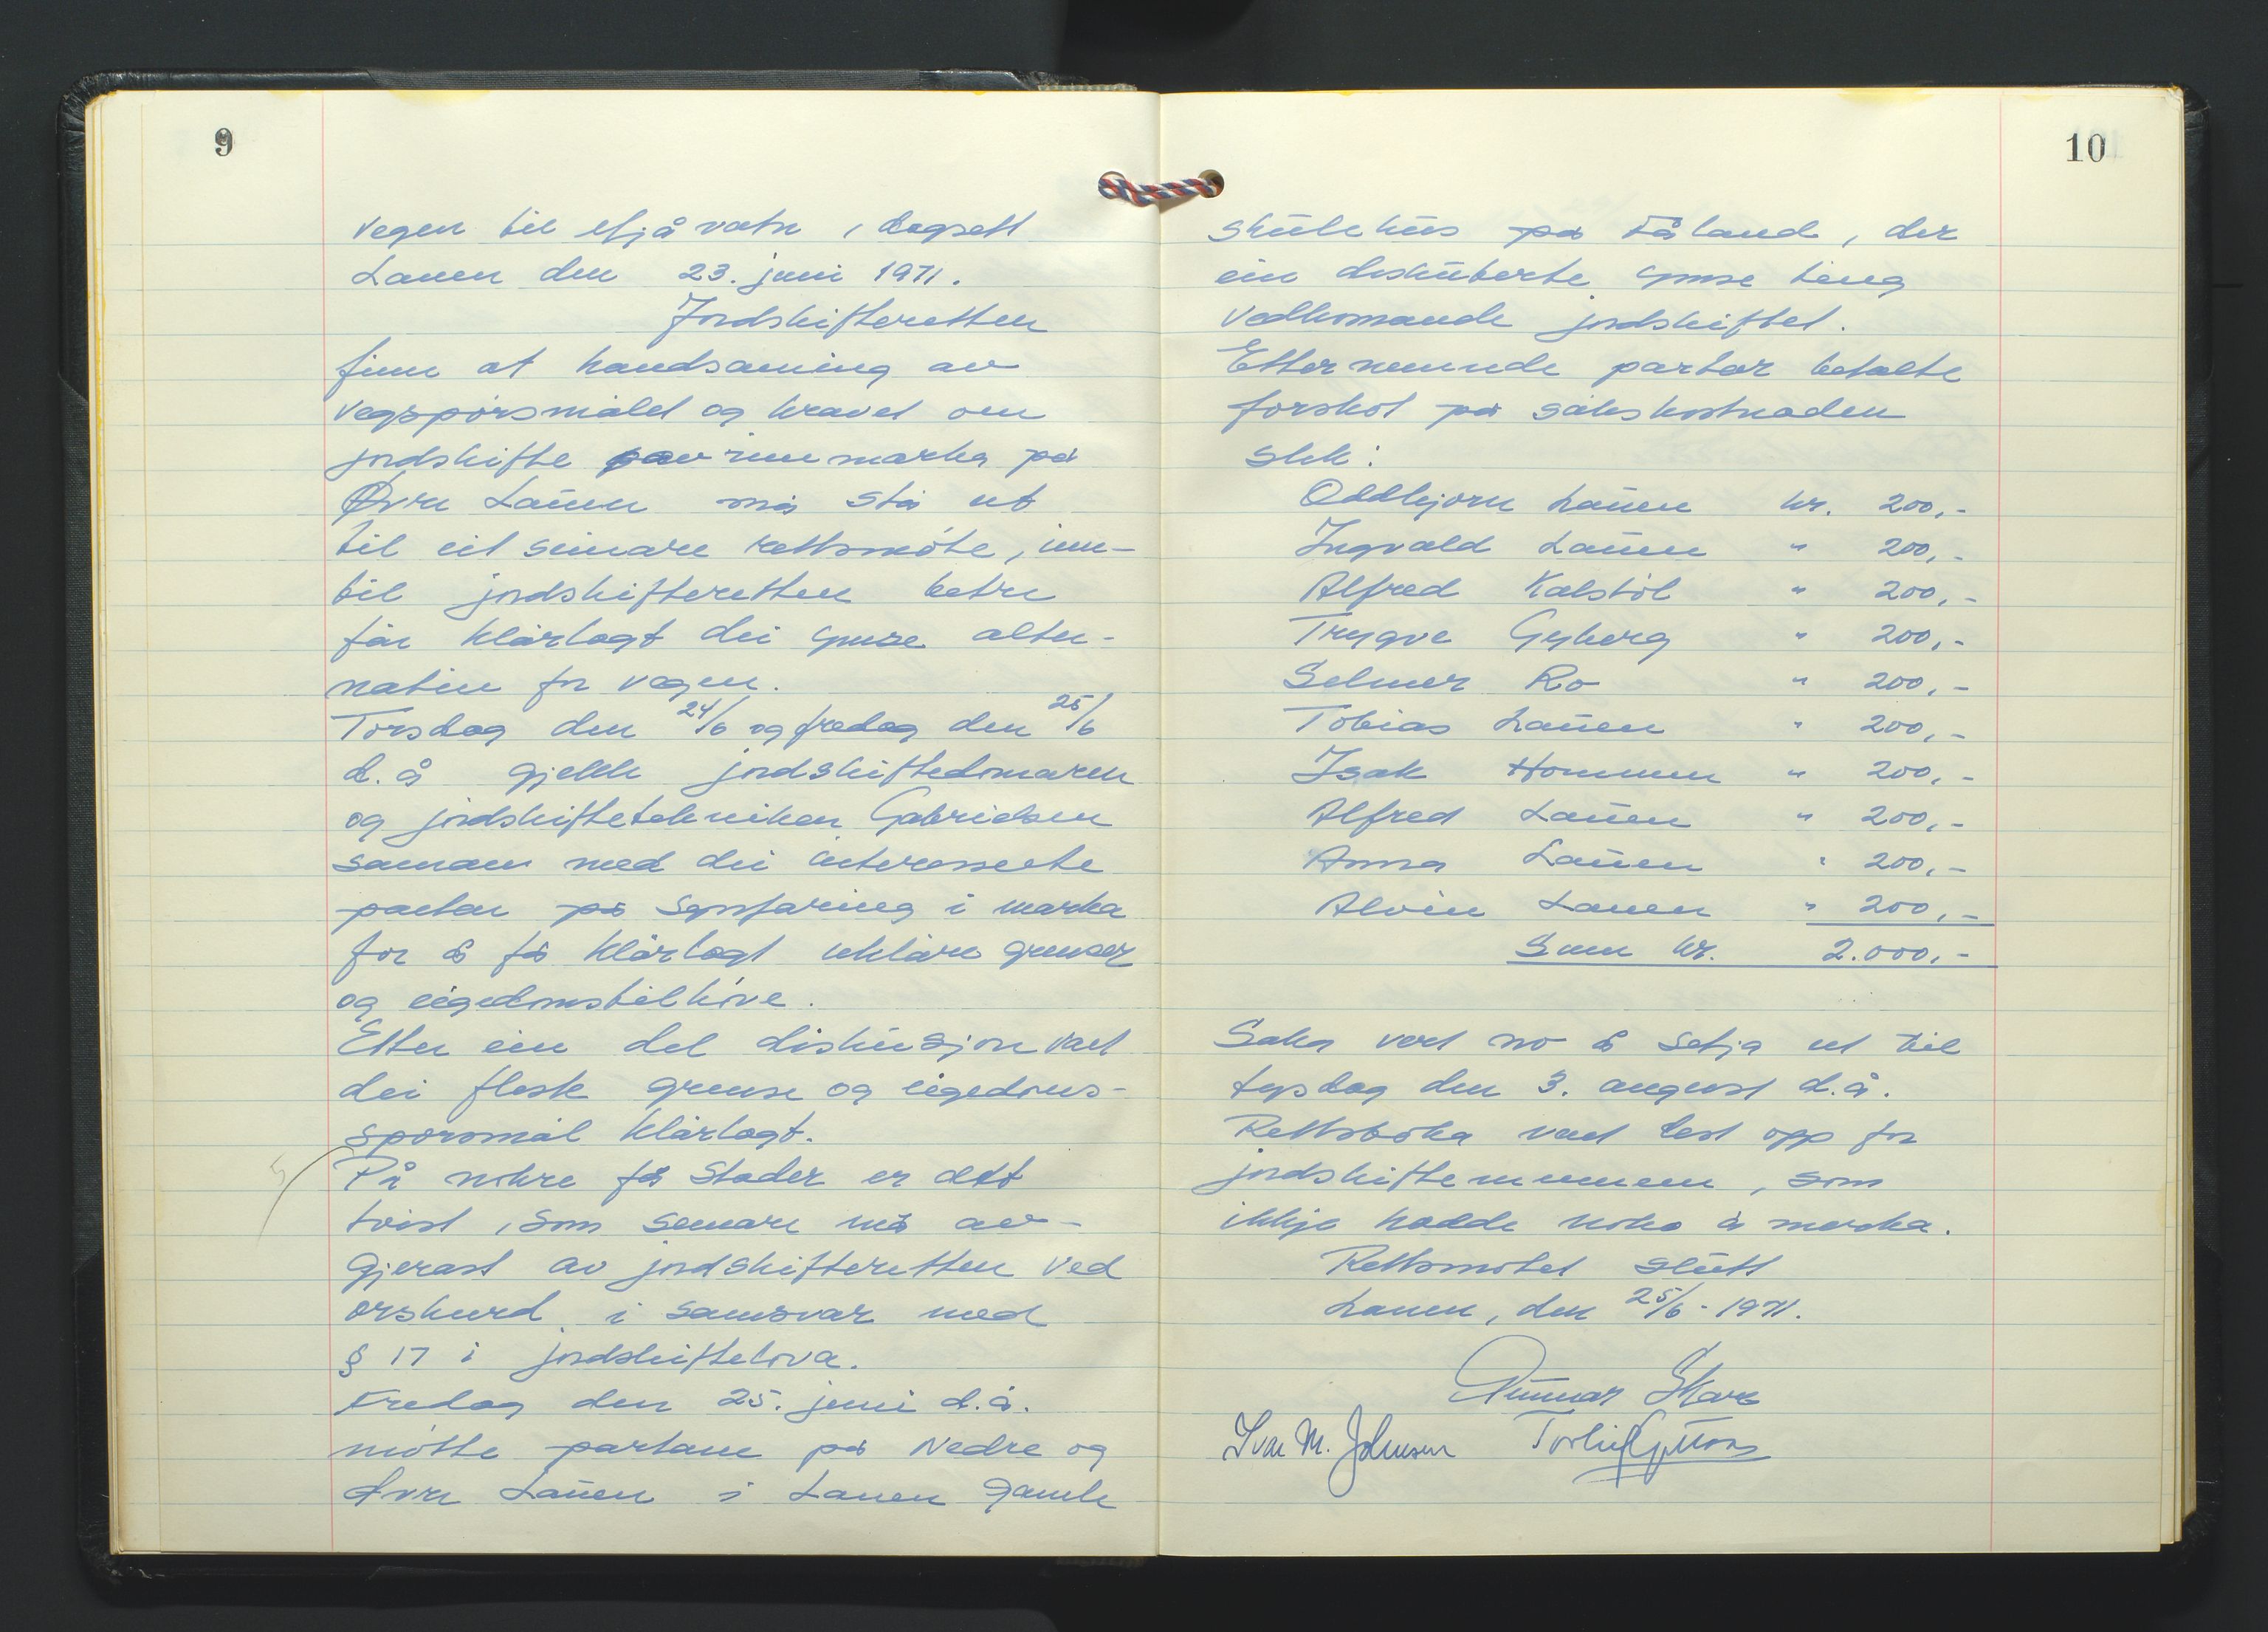 9
vegen til Ljåvatn, dagsett
Lauen den 23. juni 1971.
Jordskifteretten
finn at handsaming av
vegspørsmålet og kravet om
jordskifte av innmarka på
Øvre Lauen må stå ut
til eit seinare rettsmøte, inn-
til jordskifteretten betre
får klårlagt dei ymse alter-
nativ for vegen.
Torsdag den 24/6 og fredag den 25/6
d.å gjekk jordskiftedomaren
og jordskifteteknikar Gabrielsen
saman med dei interesserte
partar på synfaring i marka
for å få klårlagt uklåre grenser
og eigedomstilhøve.
Etter ein del diskusjon vart
dei fleste grense og eigedoms-
spørsmål klårlagt.
På nokre få stader er det
tvist, som seinare må av-
gjerast av jordskifteretten ved
orskurd i samsvar med
§ 17 i jordskiftelova.
Fredag den 25. juni d.å.
møtte partane på Nedre og
Øvre Lauen i Lauen gamle
10
skulehus på Fåland, der
ein diskuterte ymse ting
vedkomande jordskiftet.
Etternemnde partar betalte
forskot på sakskostnaden
slik:
Oddbjørn Lauen kr. 200,-
Ingvald Lauen " 200,-
Alfred Kalstøl " 200,-
Trygve Gyberg " 200,-
Selmer Ro " 200,-
Tobias Lauen " 200,-
Isak Hommen " 200,-
Alfred Lauen " 200,-
Anna Lauen " 200,-
Alvin Lauen " 200,-
Sum kr. 2.000,-
Saka vert no å setja ut til
tysdag den 3. august d.å.
Rettsboka vart lest opp for
jordskiftemennene, som
ikkje hadde noko å merka.
Rettsmøtet slutt
Lauen, den 25/6-1971.
Gunnar Skare
Ivar M. Johnsen